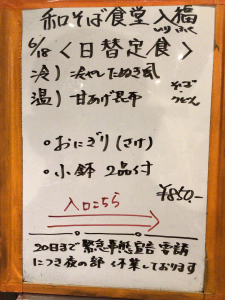 和そば食堂 入福
いりふく
6/18 <日替定食>
冷) 冷やしたぬき風
温) 甘あげ昆布
そば
うどん
○おにぎり(さけ)
○小鉢 2品付
¥850.-
入口こちら
20日まで緊急事態宣言要請
につき夜の部 休業しております